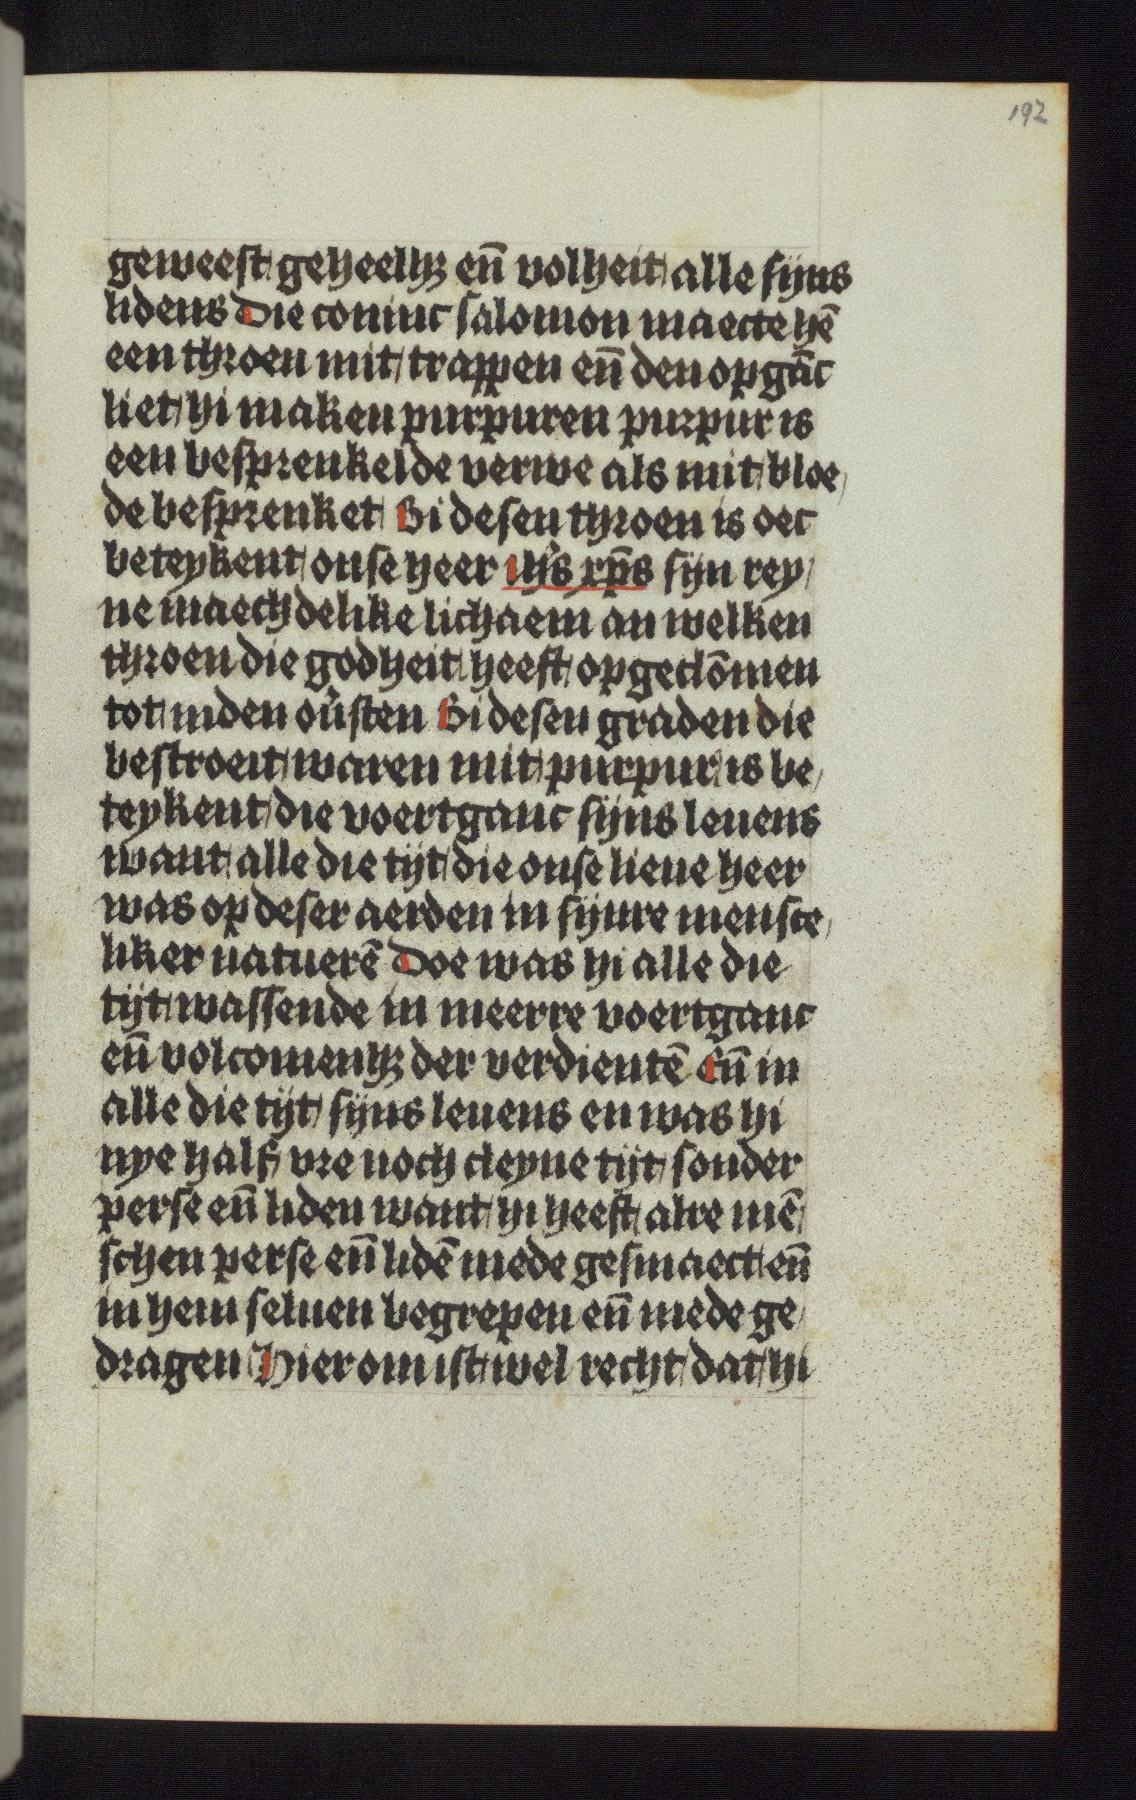 192
geweest geheelijꝫ en̄ volheit alle sijns
lidens Die coninc salomon maecte hē
een throen mit trappen en̄ den opgāc
liet hi maken purpuren purpur is
een besprenkelde verwe als mit bloe/
de besprenket Bi desen throen is oec
beteykent onse heer ihūs xp̄s sijn rey/
ne maechdelike lichaem an welken
throen die godheit heeft opgeclōmen
tot inden ou̓sten Bi desen graden die
bestroeit waren mit purpur is be/
teykent die voertganc sijns leuens
want alle die tijt die onse lieue heer
was op deser aerden in sijnre mensce/
liker natuerē Doe was hi alle die
tijt wassende in meerre voertganc
en̄ volcomenijꝫ der verdientē En̄ in
alle die tijt sijns leuens en was hi
nye half vre noch cleyne tijt sonder
perse en̄ liden want hi heeft alre mē/
schen perse en̄ lidē mede gesmaect en̄
in hem seluen begrepen en̄ mede ge/
dragen Hier om ist wel recht dat hi